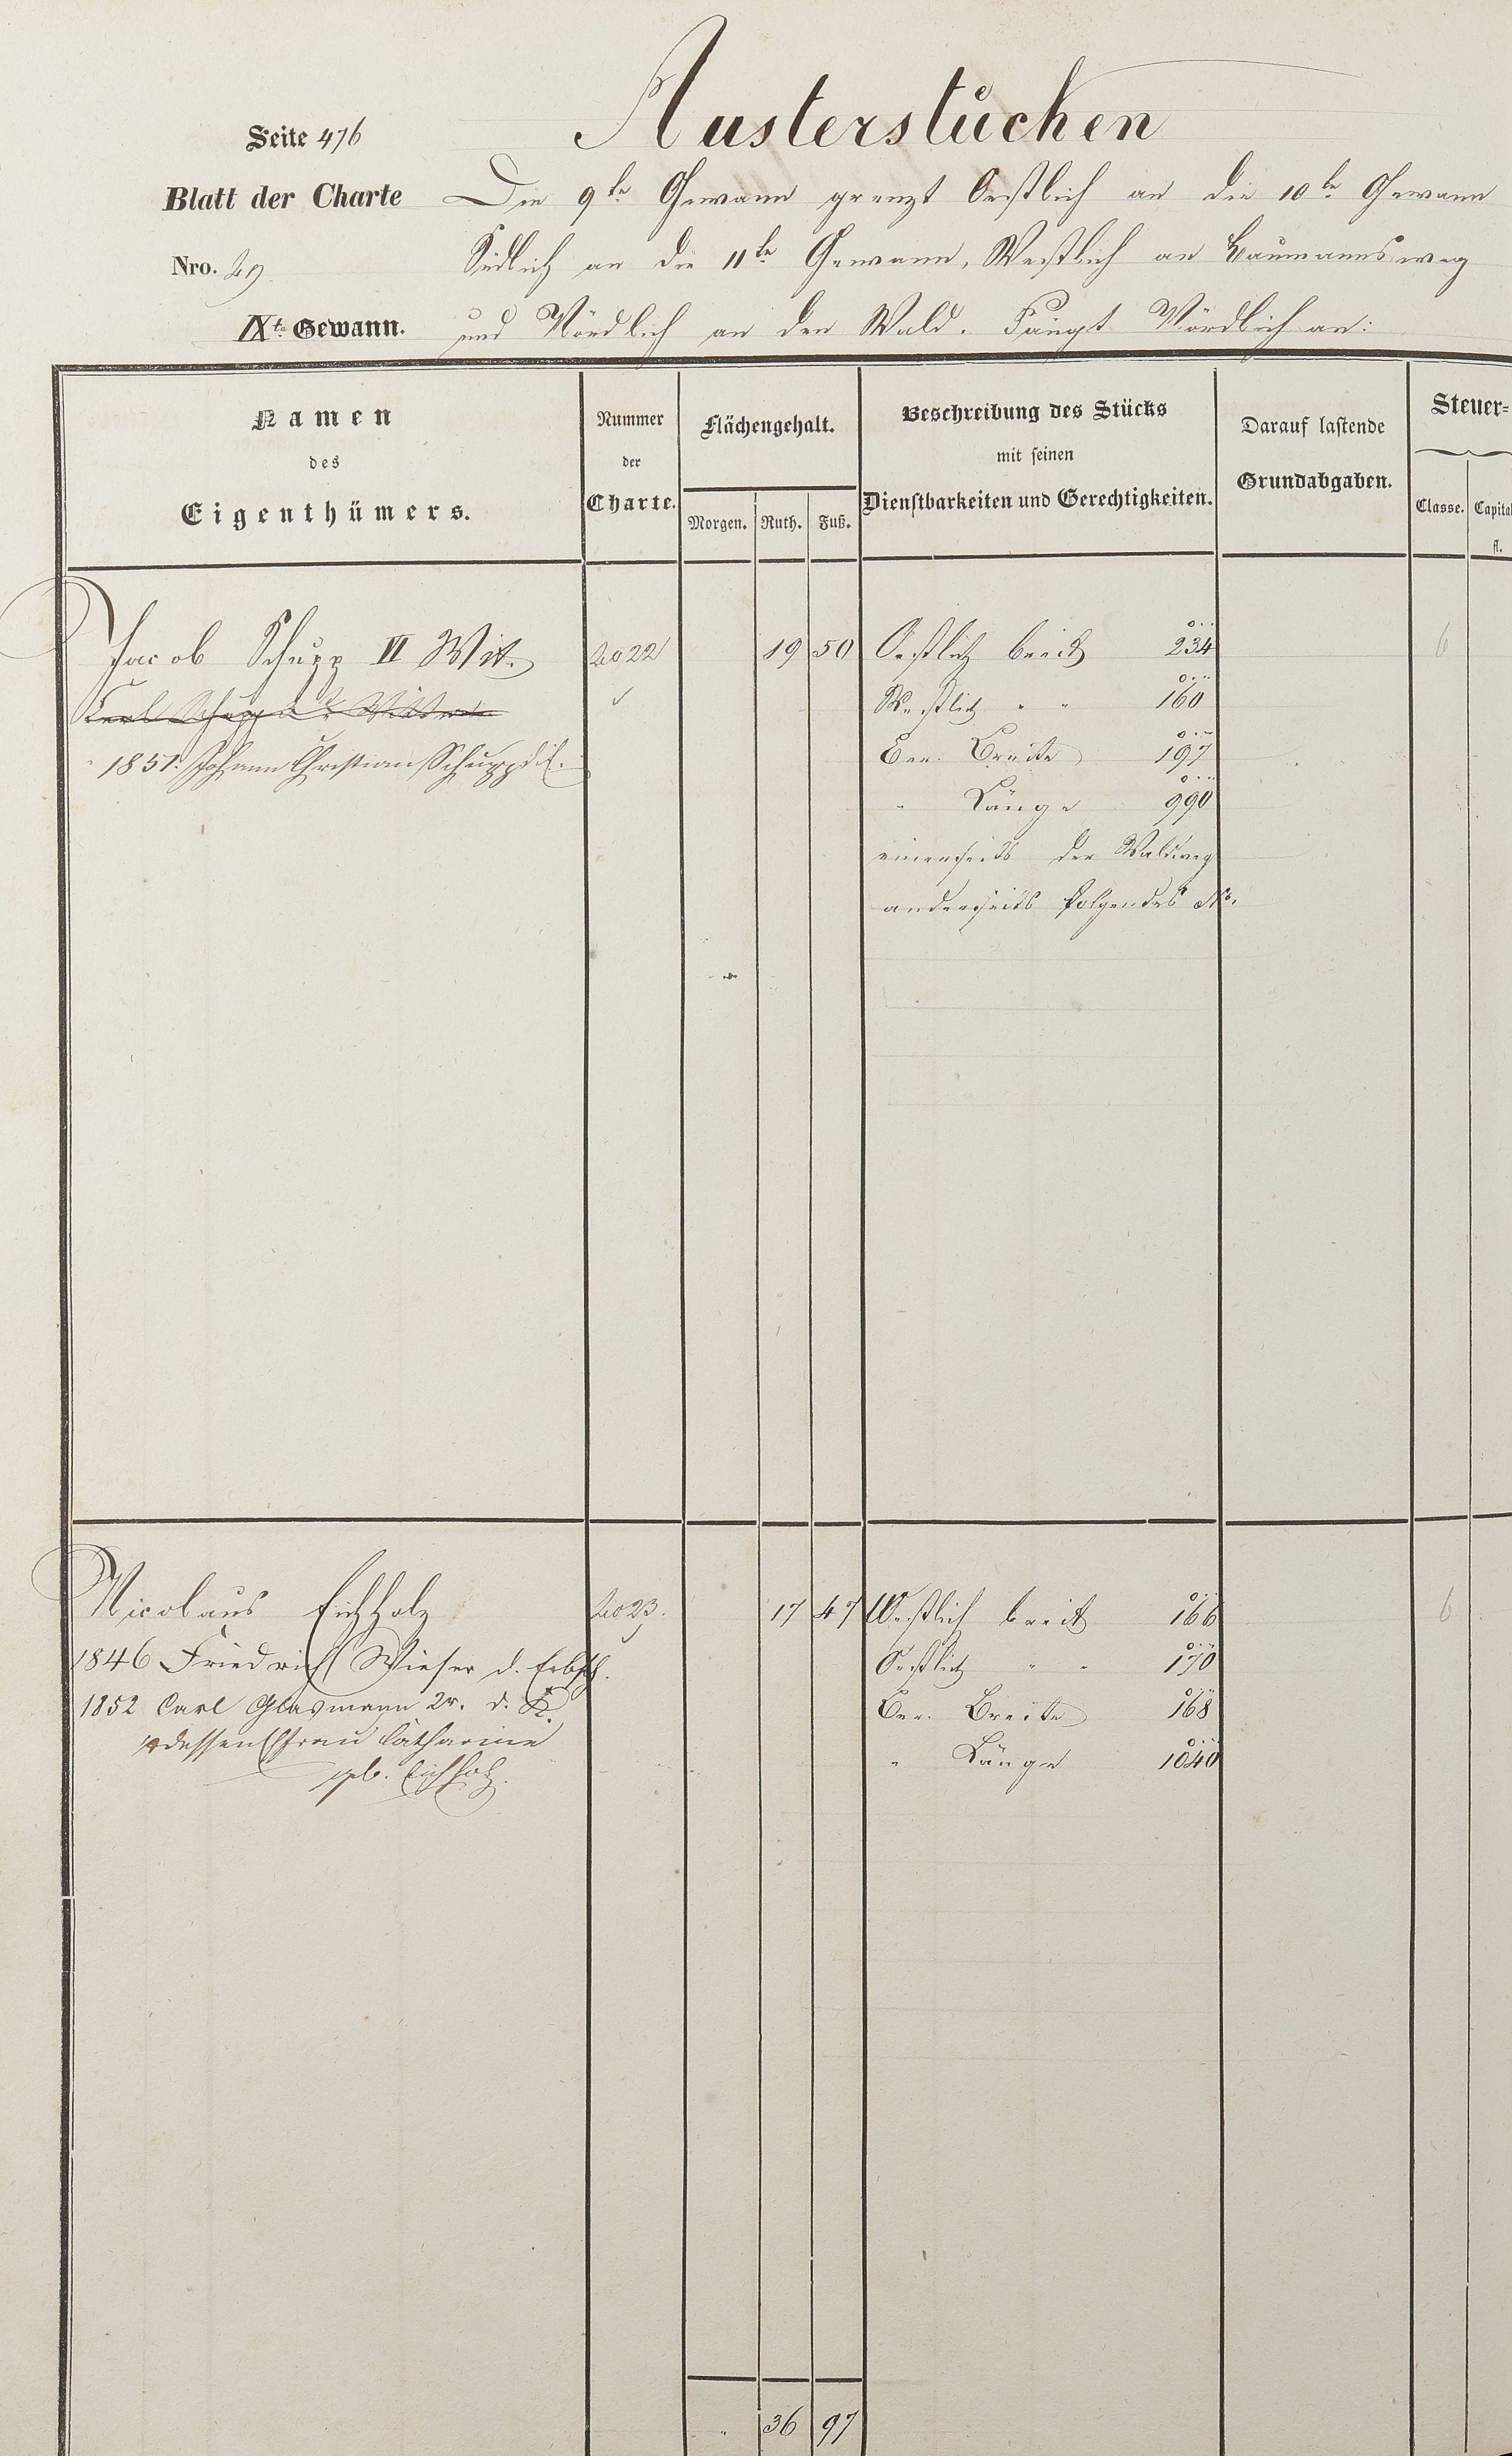 Austerstücken
Seite 476
Blatt der Charte
Die 9te Gewann grenzt Oestlich an die 10te Gewann
Nro. 29
Südlich an die 11te Gewann, Westlich an Baumannsweg
IXte Gewann.
und Nördlich an den Wald. Fängt Nördlich an:
Namen
des
Eigenthümers.
Nummer
der
Charte.
Flächengehalt.
Morgen. Ruth. Fuß.
Beschreibung des Stücks
mit seinen
Dienstbarkeiten und Gerechtigkeiten.
Darauf lastende
Grundabgaben.
Steuer-
Classe. Capital
fl.
Jacob Schupp VI Wit. 2022 19 50 Oestlich breit 234 6
Karl Schupp Wittwe Westlich " " 160
1851. Johann Christian Schupp Ber. Breite 197
" Länge 990
einerseits der Waldweg
anderseits folgendes No.
Nicolaus Eichholz 2023. 17 47 Westlich breit 166 6
1846 Friedrich Wieser d. Erbsch. Oestlich " " 170
1852 Carl Glasmann 2r. d. K. Ber. Breite 168
dessen Ehfrau Catharine " Länge 1040
geb. Eichholz.
" 36 97